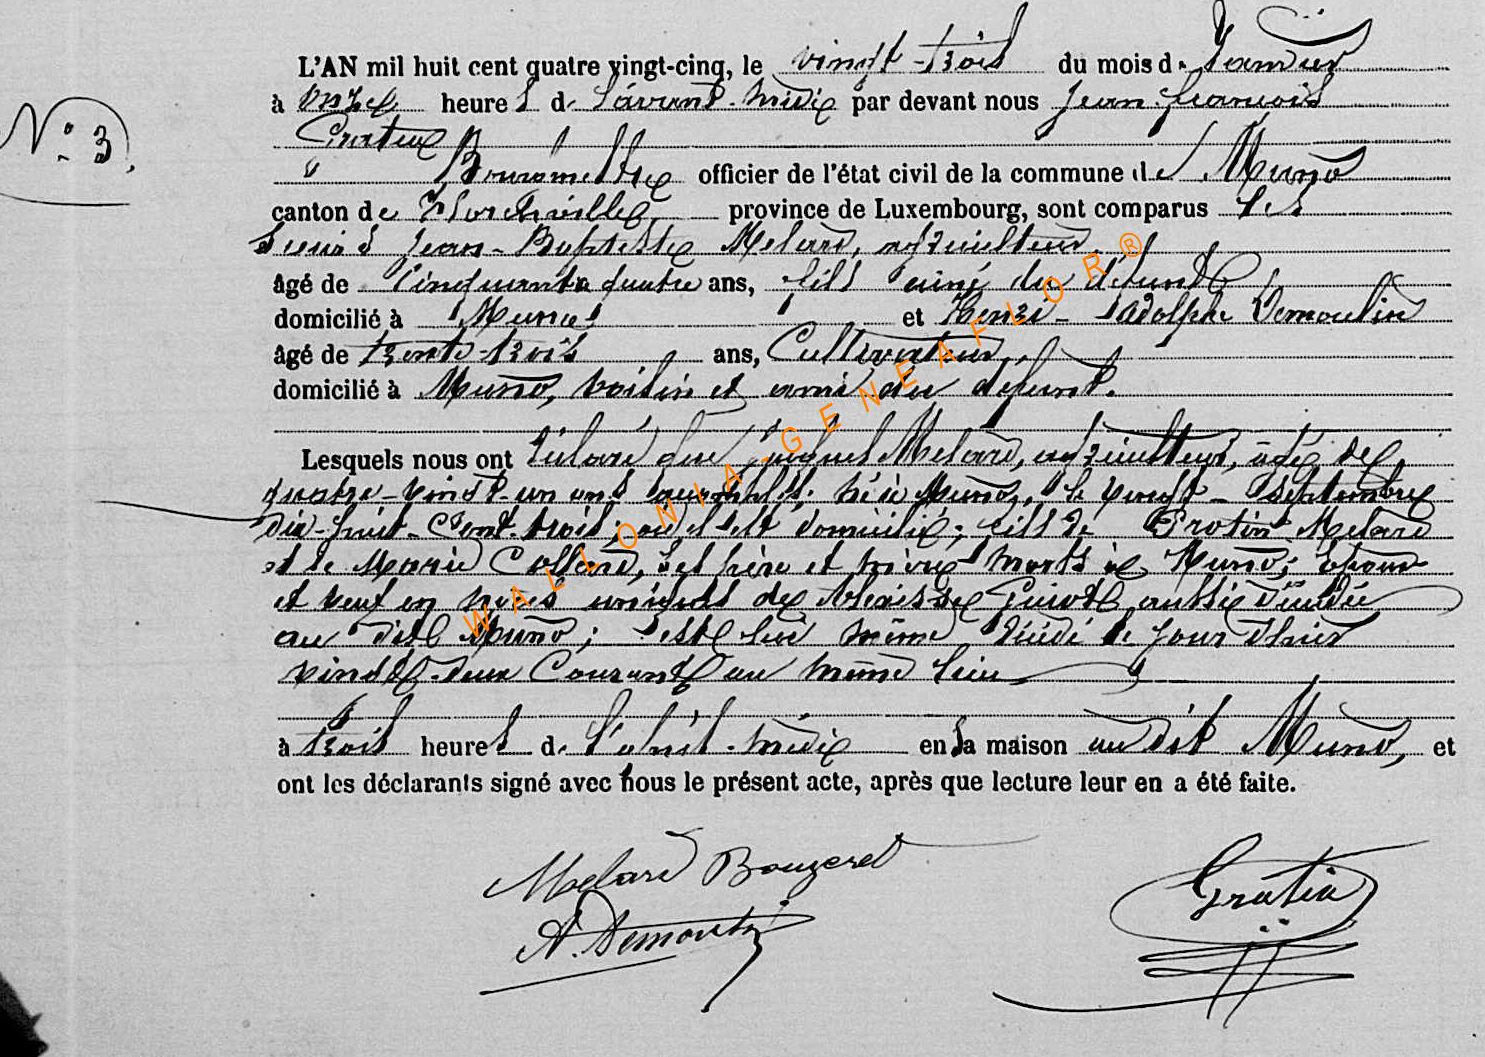 L'AN mil huit cent quatre vingt-cinq, le vingt-trois du mois de Janvier
à onze heures de l'avant-midi par devant nous Jean françois
N° 3.
Gratia
Bourgmestre officier de l'état civil de la commune de Muno
canton de Florenville, province de Luxembourg, sont comparus les
sieurs Jean-Baptiste Melard, agriculteur
âgé de Cinquante quatre ans, fils ainé du défunt
domicilié à Muno et Henri-Adolphe Demoulin
âgé de trente-trois ans, Cultivateur,
domicilié à Muno, voisin et ami du défunt.
Lesquels nous ont déclaré que Melard, agriculteur, âgé de
quatre-vingt-un ans accomplis, né à Muno, le vingt-septembre
dix-huit-Cent-trois; où il est domicilié; fils de Protin Melard
et de Marie Collard, ses père et mère morts à Muno; époux
et veuf en noces uniques de aussi décédée
au dit Muno; est lui même décédé le jour d'hier
vingt-deux Courant au même lieu
à trois heures de l'après-midi en sa maison au dit Muno, et
ont les déclarants signé avec nous le présent acte, après que lecture leur en a été faite.
Melard Bouzeret
A. Demoulin
Gratia
WALLONIA-GENEAFLOR®